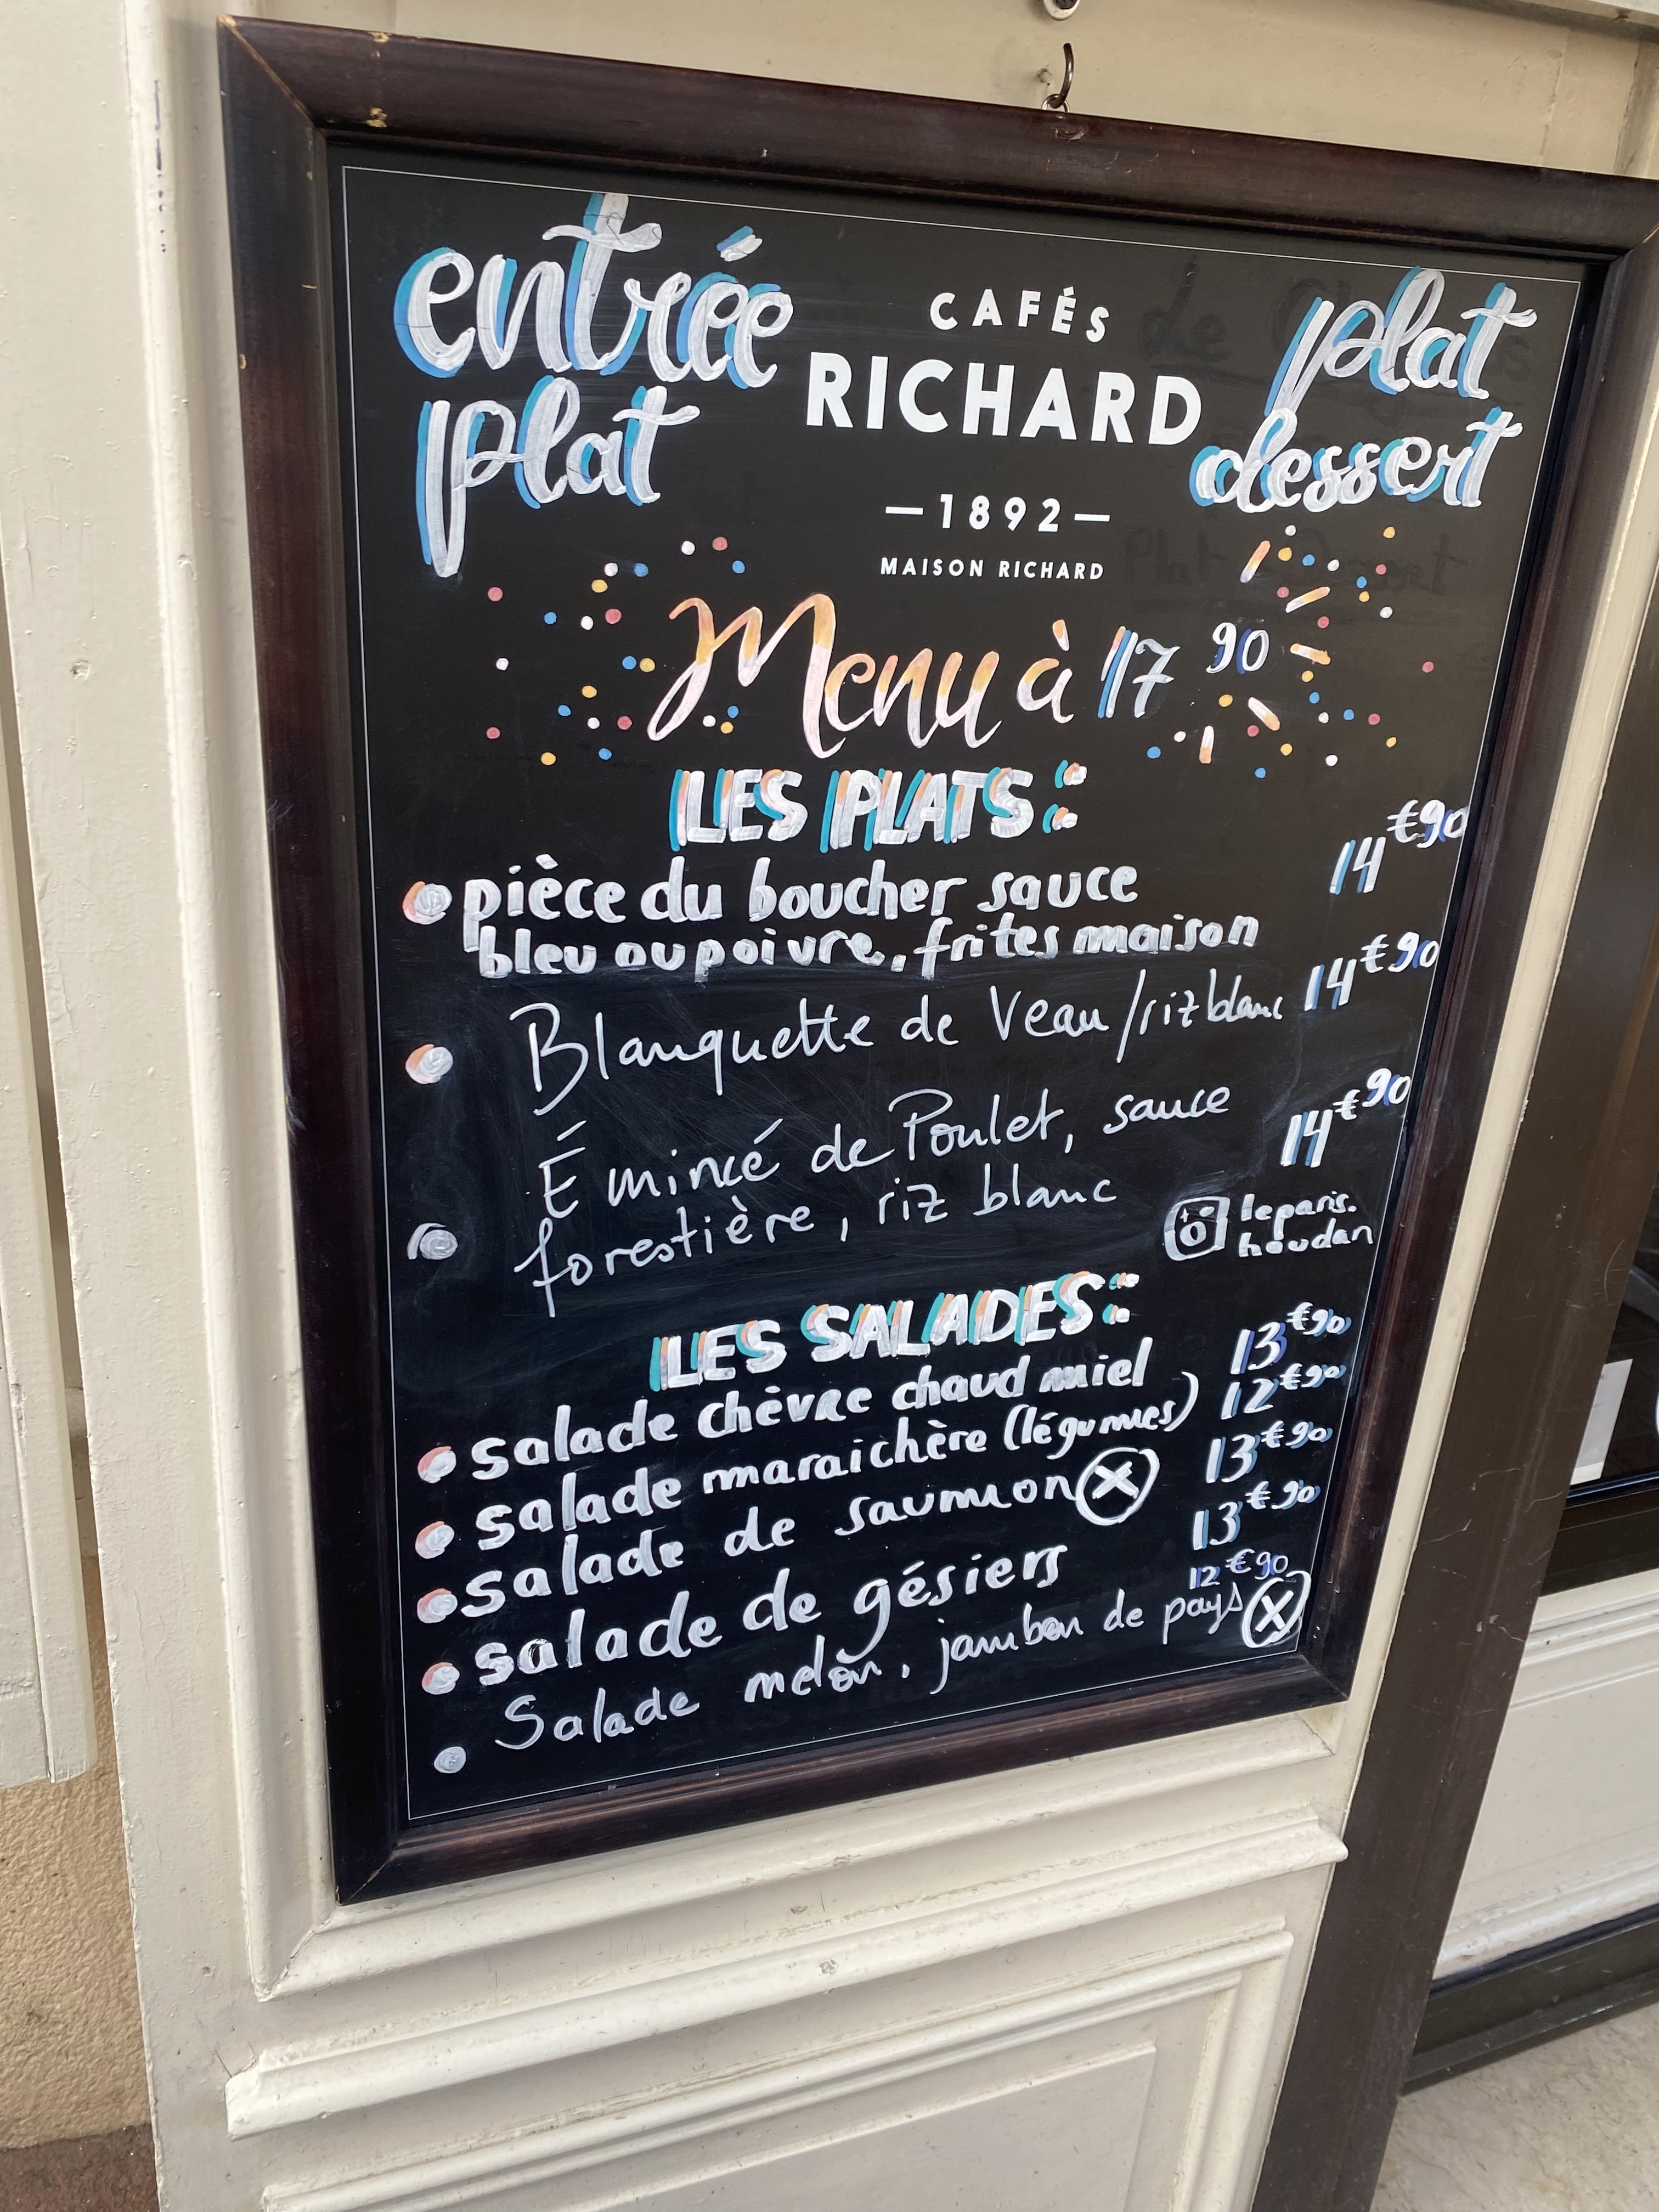 entrée
plat
CAFÉS
RICHARD
—1892—
MAISON RICHARD
plat
dessert
Menu à 17 90
LES PLATS:
pièce du boucher sauce 14€90
bleu ou poivre, frites maison
Blanquette de Veau/riz blanc 14€90
Émincé de Poulet, sauce 14€90
forestière, riz blanc
leparis.
houdan
LES SALADES:
salade chèvre chaud miel 13€90
salade maraichère (légumes) 12€90
salade de saumon X 13€90
salade de gésiers 13€90
Salade melon, jambon de pays X 12€90